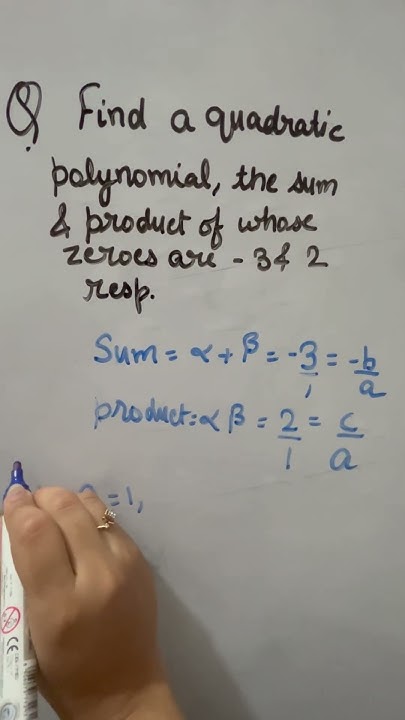 Q Find a quadratic
polynomial, the sum
& product of whose
zeroes are -3 & 2
resp.
Sum = α + β = -3/1 = -b/a
product = α β = 2/1 = c/a
= 1,
CE